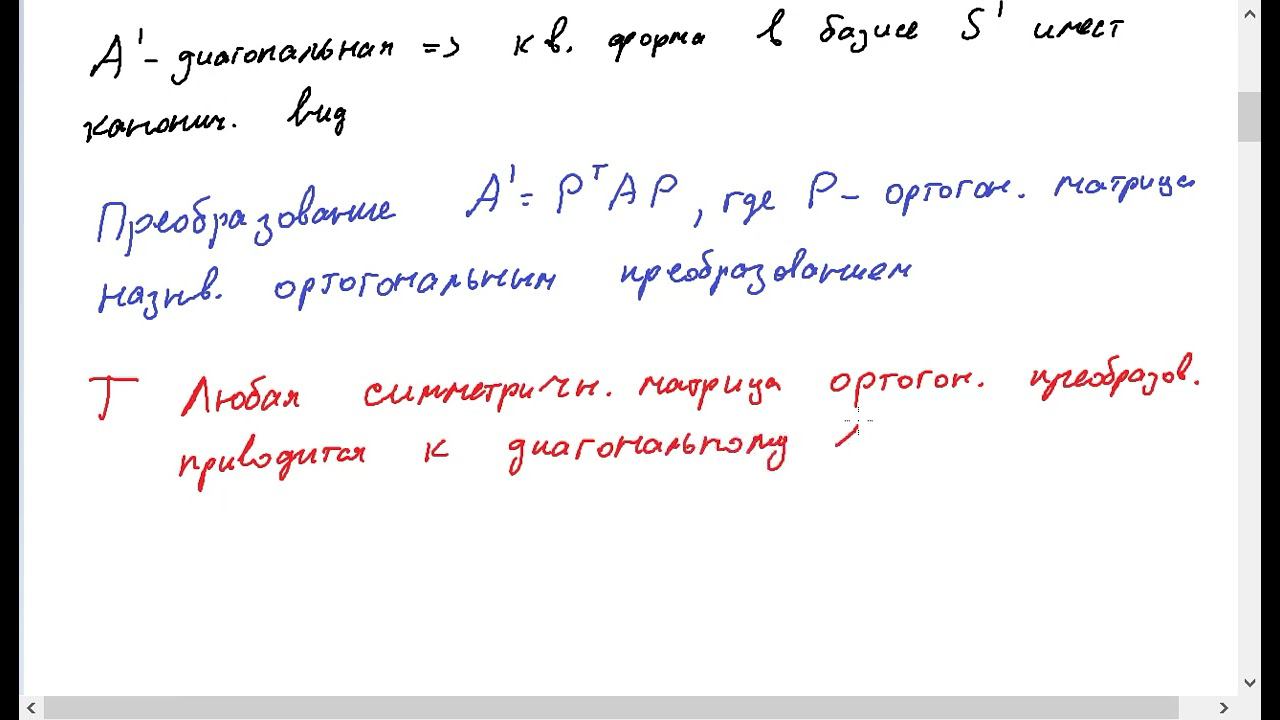 A' - диагональная => кв. форма в базисе S' имеет
канонич. вид
Преобразование A' = PᵀAP, где P – ортогон. матрица
назыв. ортогональным преобразованием
Т Любая симметричн. матрица ортогон. преобразов.
приводится к диагональному